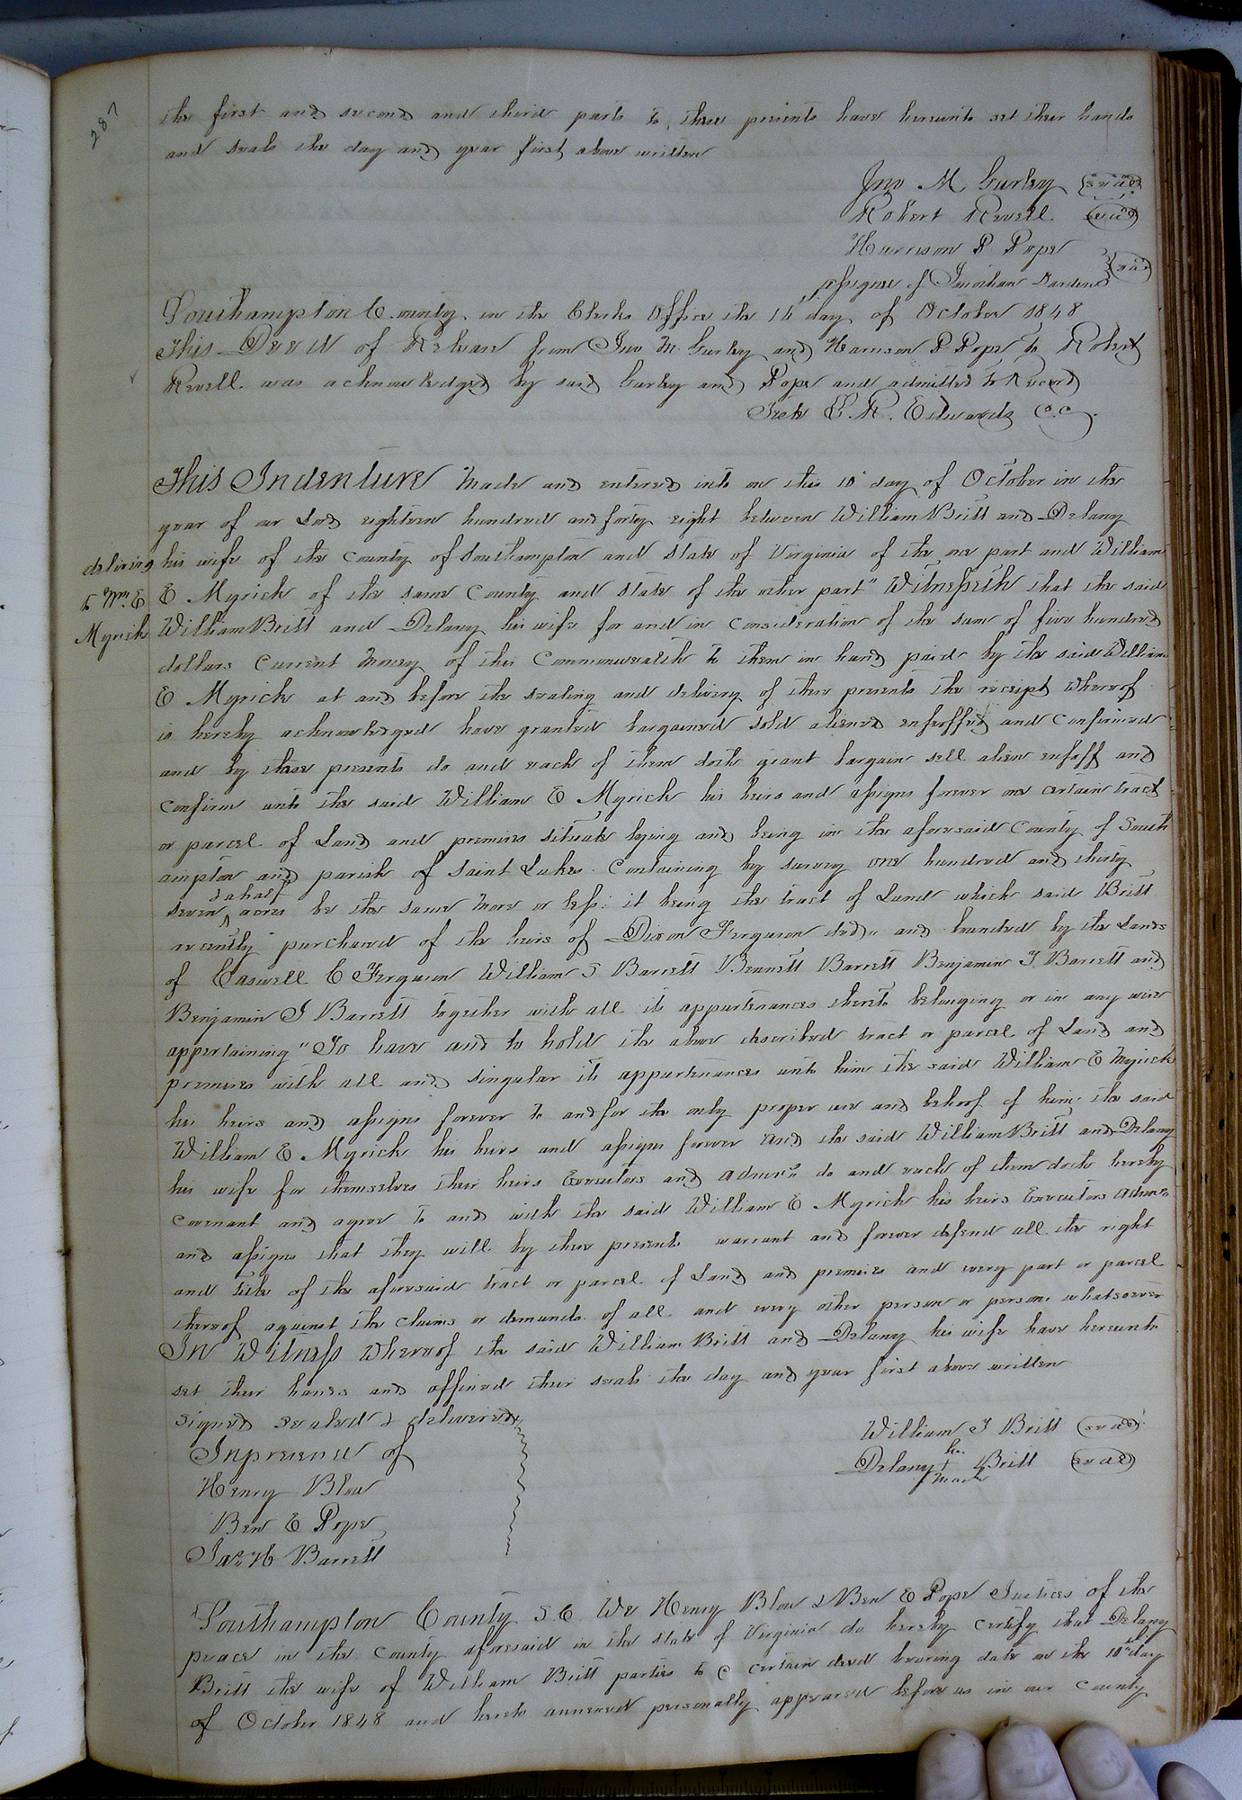 287
the first and second and third parts to these presents have hereunto set their hands
and seals the day and year first above written
Jno M Gurley (seal)
Robert Revell (seal)
Harrison P Pope (seal)
assignee of Jonathan Darden
Southampton County in the Clerks Office the 16 day of October 1848
This Deed of Release from Jno M. Gurley and Harrison P Pope to Robert
Revell was acknowledged by said Gurley and Pope and admitted to Record
Teste L. R. Edwards C.C.
This Indenture Made and entered into on this 10 day of October in the
year of our Lord eighteen hundred and forty eight between William Britt and Delany
his wife of the County of Southampton and State of Virginia of the one part and William
delivered
to Wm. E
Myrick
E Myrick of the same County and State of the other part" Witnesseth that the said
William Britt and Delany his wife for and in consideration of the sum of five hundred
dollars Current Money of this Commonwealth to them in hand paid by the said William
E Myrick at and before the sealing and delivery of these presents the receipt whereof
is hereby acknowledged have granted bargained sold aliened enfeoffed and confirmed
and by these presents do and each of them doth grant bargain sell alien enfoff and
confirm unto the said William E Myrick his heirs and assigns forever one certain tract
or parcel of Land and premises situate lying and being in the aforesaid County of South
ampton and parish of Saint Lukes Containing by survey one hundred and thirty
& a half
seven acres be the same More or less: it being the tract of Land which said Britt
recently purchased of the heirs of Dixon Ferguson decd. and bounded by the Lands
of Caswell E Ferguson William S Barrett Bennett Barrett Benjamin T. Barrett and
Benjamin J Barrett together with all its appurtenances thereto belonging or in any wise
appertaining" To have and to hold the above described tract or parcel of Land and
premises with all and singular its appurtenances unto him the said William E Myrick
his heirs and assigns forever to and for the only proper use and behoof of him the said
William E Myrick his heirs and assigns forever And the said William Britt and Delany
his wife for themselves their heirs Executors and Admrs do and each of them doth hereby
covenant and agree to and with the said William E Myrick his heirs Executors Admrs
and assigns that they will by these presents warrant and forever defend all the right
and title of the aforesaid tract or parcel of Land and premises and every part or parcel
thereof against the claims or demands of all and every other person or persons whatsoever
In Witness Whereof the said William Britt and Delany his wife have hereunto
set their hands and affixed their seals the day and year first above written
Signed sealed & delivered
In presence of
Henry Blow
Ben E Pope
Jas H Barrett
William J Britt (seal)
her
Delany + Britt (seal)
mark
Southampton County S C We Henry Blow & Ben E Pope Justices of the
peace in the County aforesaid in the State of Virginia do hereby certify that Delany
Britt the wife of William Britt parties to a certain deed bearing date on the 10th day
of October 1848 and hereto annexed personally appeared before us in our County